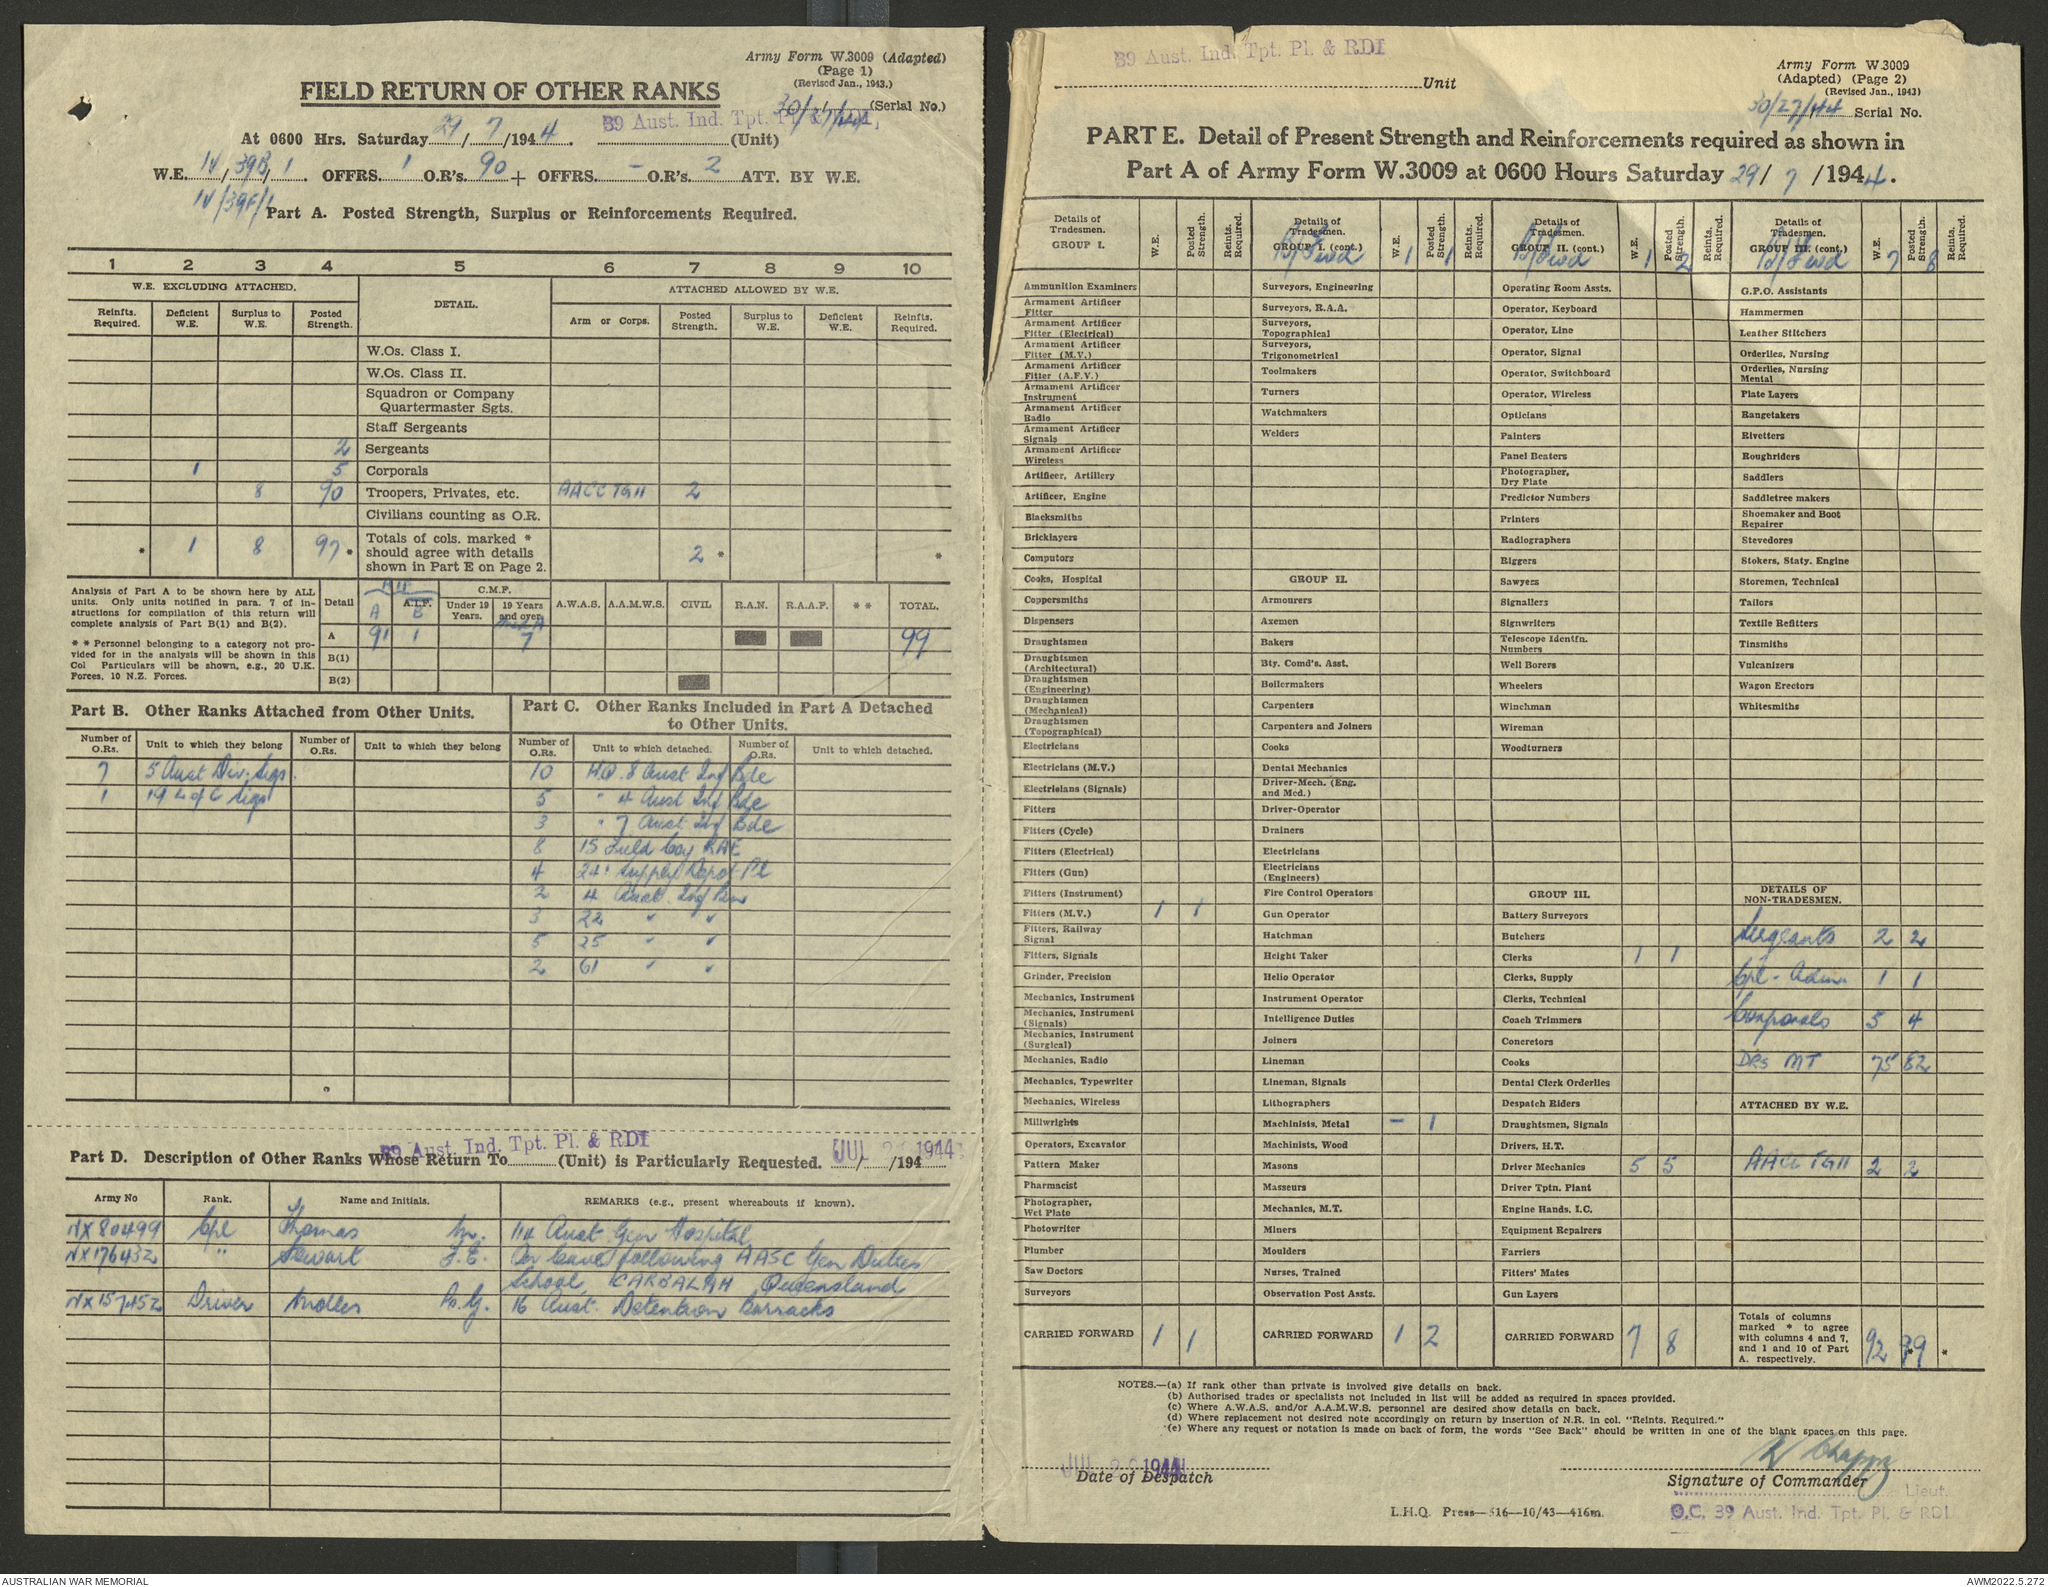 Army Form W.3009 (Adapted)
(Page 1)
(Revised Jan., 1943.)
FIELD RETURN OF OTHER RANKS
30/7/44 (Serial No.)
39 Aust. Ind. Tpt. Pl. & RDI,
At 0600 Hrs. Saturday 29/7/1944. (Unit)
W.E. IV/39B/1. OFFRS. 1 O.R's. 90 + OFFRS. - O.R's. 2 ATT. BY W.E.
IV/39F/1
Part A. Posted Strength, Surplus or Reinforcements Required.
1 2 3 4 5 6 7 8 9 10
W.E. EXCLUDING ATTACHED. DETAIL. ATTACHED ALLOWED BY W.E.
Reinfts. Required. Deficient W.E. Surplus to W.E. Posted Strength. Arm or Corps. Posted Strength. Surplus to W.E. Deficient W.E. Reinfts. Required.
W.Os. Class I.
W.Os. Class II.
Squadron or Company
Quartermaster Sgts.
Staff Sergeants
2 Sergeants
1 5 Corporals
8 90 Troopers, Privates, etc. AACC TGH 2
Civilians counting as O.R.
* 1 8 97 * Totals of cols. marked * should agree with details shown in Part E on Page 2. 2 * *
Analysis of Part A to be shown here by ALL units. Only units notified in para. 7 of instructions for compilation of this return will complete analysis of Part B(1) and B(2).
* * Personnel belonging to a category not provided for in the analysis will be shown in this Col Particulars will be shown, e.g., 20 U.K. Forces, 10 N.Z. Forces.
Detail A A.I.F. B C.M.F. Under 19 Years. 19 Years and over. A.W.A.S. A.A.M.W.S. CIVIL R.A.N. R.A.A.F. * * TOTAL.
A 91 1 7 99
B(1)
B(2)
Part B. Other Ranks Attached from Other Units.
Number of O.Rs. Unit to which they belong Number of O.Rs. Unit to which they belong
7 5 Aust Div. Sigs.
1 19 L of C Sigs
Part C. Other Ranks Included in Part A Detached
to Other Units.
Number of O.Rs. Unit to which detached. Number of O.Rs. Unit to which detached.
10 H.Q. 8 Aust Inf Bde
5 " 4 Aust Inf Bde
3 " 7 Aust Inf Bde
8 15 Field Coy RAE
4 241 Supply Depot Pl
2 4 Aust. Inf Bn
3 22 " "
5 25 " "
2 61 " "
39 Aust. Ind. Tpt. Pl. & RDI
Part D. Description of Other Ranks Whose Return To (Unit) is Particularly Requested. JUL 1944 / /194
Army No Rank. Name and Initials. REMARKS (e.g., present whereabouts if known).
NX80499 Cpl Thomas 114 Aust. Gen Hospital
NX176432 " Stewart J.E. On leave following AASC Gen Duties
School, KARBALAH Queensland
NX157452 Driver 16 Aust. Detention Barracks
39 Aust. Ind. Tpt. Pl. & RDI
Unit
Army Form W.3009
(Adapted) (Page 2)
(Revised Jan., 1943)
30/27/44 Serial No.
PART E. Detail of Present Strength and Reinforcements required as shown in
Part A of Army Form W.3009 at 0600 Hours Saturday 29/7/1944.
Details of Tradesmen. GROUP I. W.E. Posted Strength. Reints. Required.
Ammunition Examiners
Armament Artificer Fitter
Armament Artificer Fitter (Electrical)
Armament Artificer Fitter (M.V.)
Armament Artificer Fitter (A.F.V.)
Armament Artificer Instrument
Armament Artificer Radio
Armament Artificer Signals
Armament Artificer Wireless
Artificer, Artillery
Artificer, Engine
Blacksmiths
Bricklayers
Computors
Cooks, Hospital
Coppersmiths
Dispensers
Draughtsmen
Draughtsmen (Architectural)
Draughtsmen (Engineering)
Draughtsmen (Mechanical)
Draughtsmen (Topographical)
Electricians
Electricians (M.V.)
Electricians (Signals)
Fitters
Fitters (Cycle)
Fitters (Electrical)
Fitters (Gun)
Fitters (Instrument)
Fitters (M.V.) 1 1
Fitters, Railway Signal
Fitters, Signals
Grinder, Precision
Mechanics, Instrument
Mechanics, Instrument (Signals)
Mechanics, Instrument (Surgical)
Mechanics, Radio
Mechanics, Typewriter
Mechanics, Wireless
Millwrights
Operators, Excavator
Pattern Maker
Pharmacist
Photographer, Wet Plate
Photowriter
Plumber
Saw Doctors
Surveyors
CARRIED FORWARD 1 1
Details of Tradesmen. GROUP I. (cont.) B/Fwd W.E. 1 Posted Strength. 1 Reints. Required.
Surveyors, Engineering
Surveyors, R.A.A.
Surveyors, Topographical
Surveyors, Trigonometrical
Toolmakers
Turners
Watchmakers
Welders
GROUP II.
Armourers
Axemen
Bakers
Bty. Comd's. Asst.
Boilermakers
Carpenters
Carpenters and Joiners
Cooks
Dental Mechanics
Driver-Mech. (Eng. and Med.)
Driver-Operator
Drainers
Electricians
Electricians (Engineers)
Fire Control Operators
Gun Operator
Hatchman
Height Taker
Helio Operator
Instrument Operator
Intelligence Duties
Joiners
Lineman
Lineman, Signals
Lithographers
Machinists, Metal - 1
Machinists, Wood
Masons
Masseurs
Mechanics, M.T.
Miners
Moulders
Nurses, Trained
Observation Post Assts.
CARRIED FORWARD 1 2
Details of Tradesmen. GROUP II. (cont.) B/Fwd W.E. 1 Posted Strength. 2 Reints. Required.
Operating Room Assts.
Operator, Keyboard
Operator, Line
Operator, Signal
Operator, Switchboard
Operator, Wireless
Opticians
Painters
Panel Beaters
Photographer, Dry Plate
Predictor Numbers
Printers
Radiographers
Riggers
Sawyers
Signallers
Signwriters
Telescope Identfn. Numbers
Well Borers
Wheelers
Winchman
Wireman
Woodturners
GROUP III.
Battery Surveyors
Butchers
Clerks 1 1
Clerks, Supply
Clerks, Technical
Coach Trimmers
Concretors
Cooks
Dental Clerk Orderlies
Despatch Riders
Draughtsmen, Signals
Drivers, H.T.
Driver Mechanics 5 5
Driver Tptn. Plant
Engine Hands, I.C.
Equipment Repairers
Farriers
Fitters' Mates
Gun Layers
CARRIED FORWARD 7 8
Details of Tradesmen. GROUP III. (cont.) B/Fwd W.E. 7 Posted Strength. 8 Reints. Required.
G.P.O. Assistants
Hammermen
Leather Stitchers
Orderlies, Nursing
Orderlies, Nursing Mental
Plate Layers
Rangetakers
Rivetters
Roughriders
Saddlers
Saddletree makers
Shoemaker and Boot Repairer
Stevedores
Stokers, Staty. Engine
Storemen, Technical
Tailors
Textile Refitters
Tinsmiths
Vulcanizers
Wagon Erectors
Whitesmiths
DETAILS OF NON-TRADESMEN.
Sergeants 2 2
Cpl - Adm 1 1
Corporals 5 4
Drs MT 75 82
ATTACHED BY W.E.
AACC TGH 2 2
Totals of columns marked * to agree with columns 4 and 7, and 1 and 10 of Part A. respectively. 92 99 * *
NOTES.—(a) If rank other than private is involved give details on back.
(b) Authorised trades or specialists not included in list will be added as required in spaces provided.
(c) Where A.W.A.S. and/or A.A.M.W.S. personnel are desired show details on back.
(d) Where replacement not desired note accordingly on return by insertion of N.R. in col. "Reints. Required."
(e) Where any request or notation is made on back of form, the words "See Back" should be written in one of the blank spaces on this page.
JUL 1944
Date of Despatch
Signature of Commander
Lieut.
L.H.Q. Press—516—10/43—416m.
O.C. 39 Aust. Ind. Tpt. Pl. & RDI
AUSTRALIAN WAR MEMORIAL
AWM2022.5.272